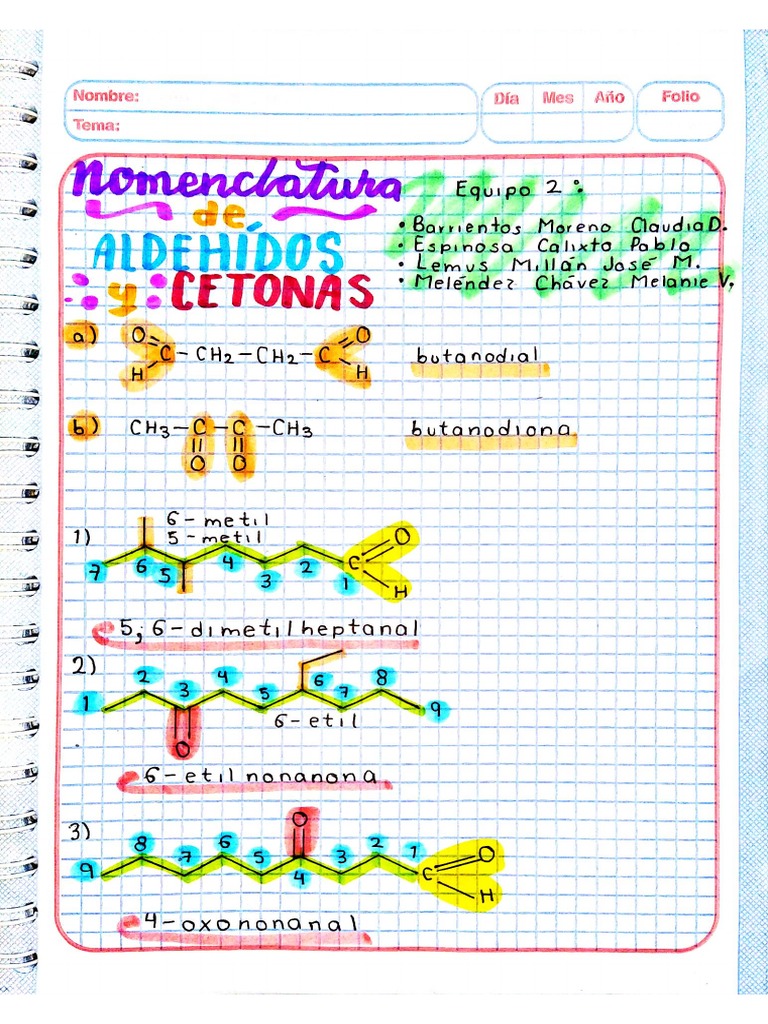 Nombre:
Día Mes Año
Folio
Tema:
Nomenclatura
de
ALDEHÍDOS
y
CETONAS
Equipo 2°
• Barrientos Moreno Claudia D.
• Espinosa Calixto Pablo
• Lemus Millán José M.
• Meléndez Chávez Melanie V.
a)
O O
C - CH2 - CH2 - C
H H
butanodial
b)
CH3 - C - C - CH3
O O
butanodiona
1)
6 - metil
5 - metil
7 6 5 4 3 2 1 C O H
5,6 - dimetilheptanal
2)
1 2 3 4 5 6 7 8 9
O
6 - etil
6 - etil nonanona
3)
O
9 8 7 6 5 4 3 2 1 C O H
4 - oxononanal